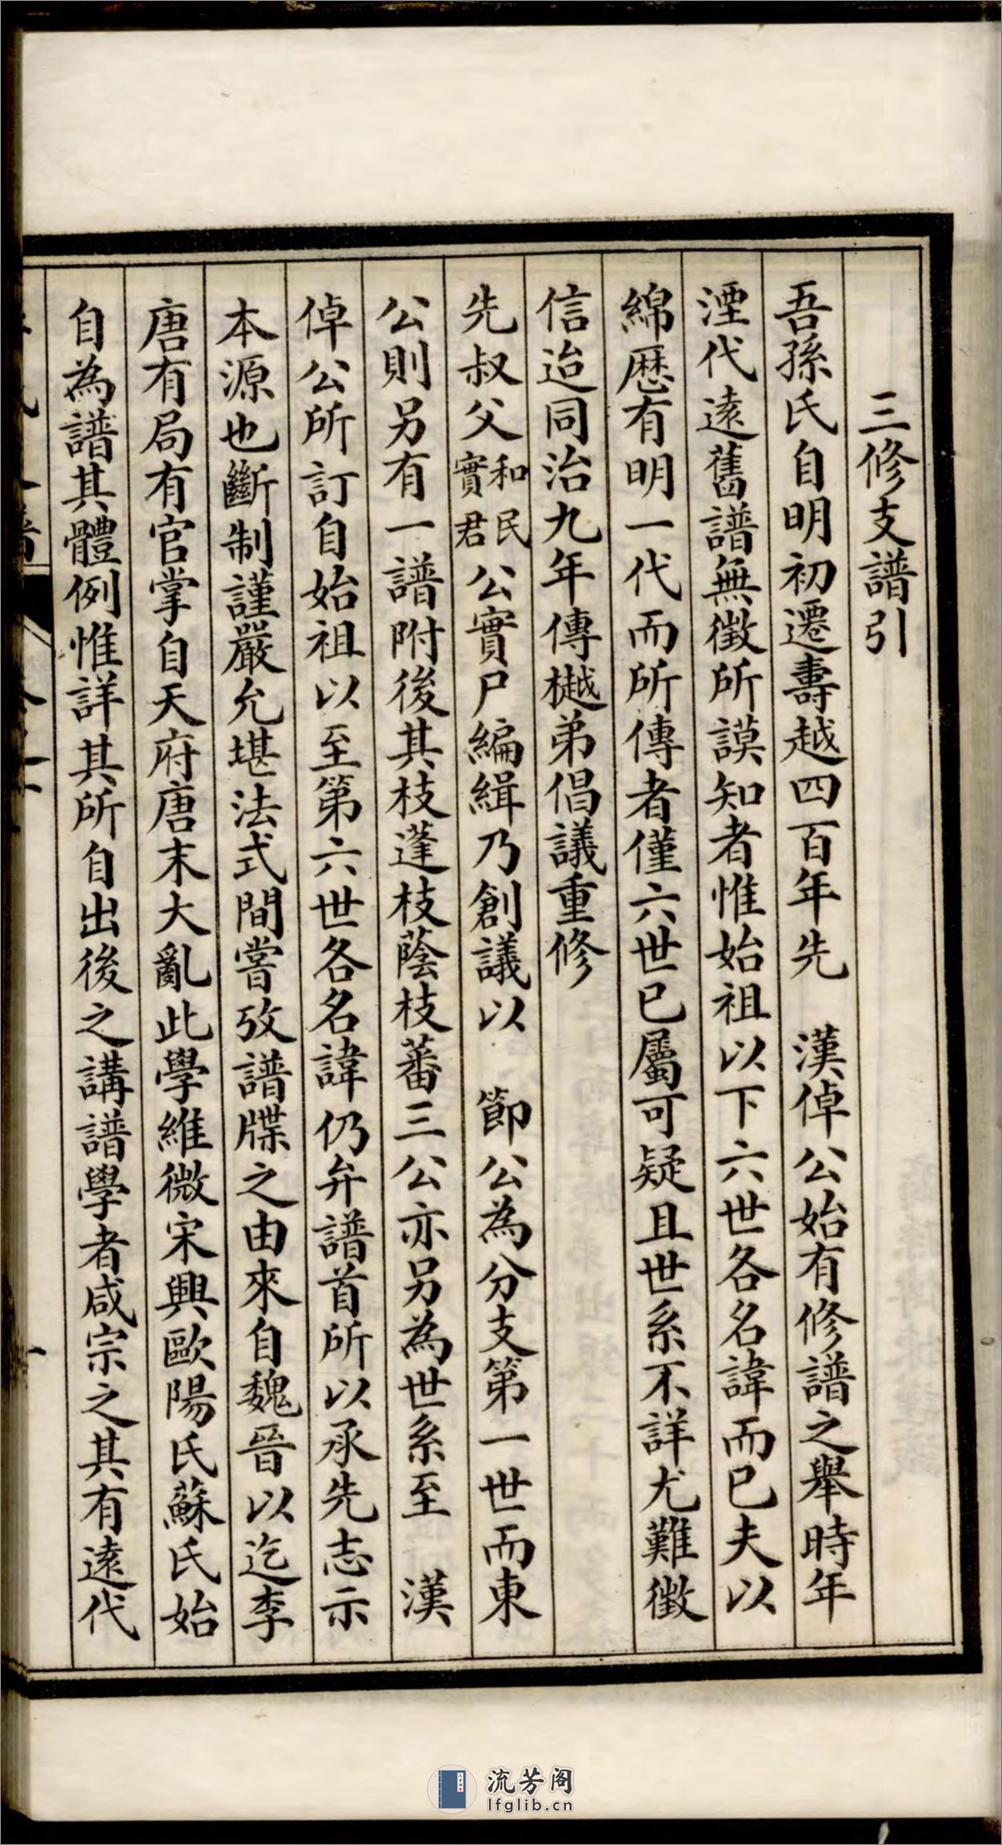 三修支譜引
吾孫氏自明初遷壽越四百年先　漢倬公始有修譜之舉時年
湮代遠舊譜無徵所謨知者惟始祖以下六世各名諱而已夫以
綿歷有明一代而所傳者僅六世已屬可疑且世系不詳尤難徵
信迨同治九年傳樾弟倡議重修
先叔父和民實君公實尸編緝乃創議以　節公為分支第一世而東
公則另有一譜附後其枝蓬枝蔭枝蕃三公亦另為世系至　漢
倬公所訂自始祖以至第六世各名諱仍弁譜首所以承先志示
本源也斷制謹嚴允堪法式間嘗攷譜牒之由來自魏晉以迄李
唐有局有官掌自天府唐末大亂此學維微宋興歐陽氏蘇氏始
自為譜其體例惟詳其所自出後之講譜學者咸宗之其有遠代
流芳阁
lfglib.cn